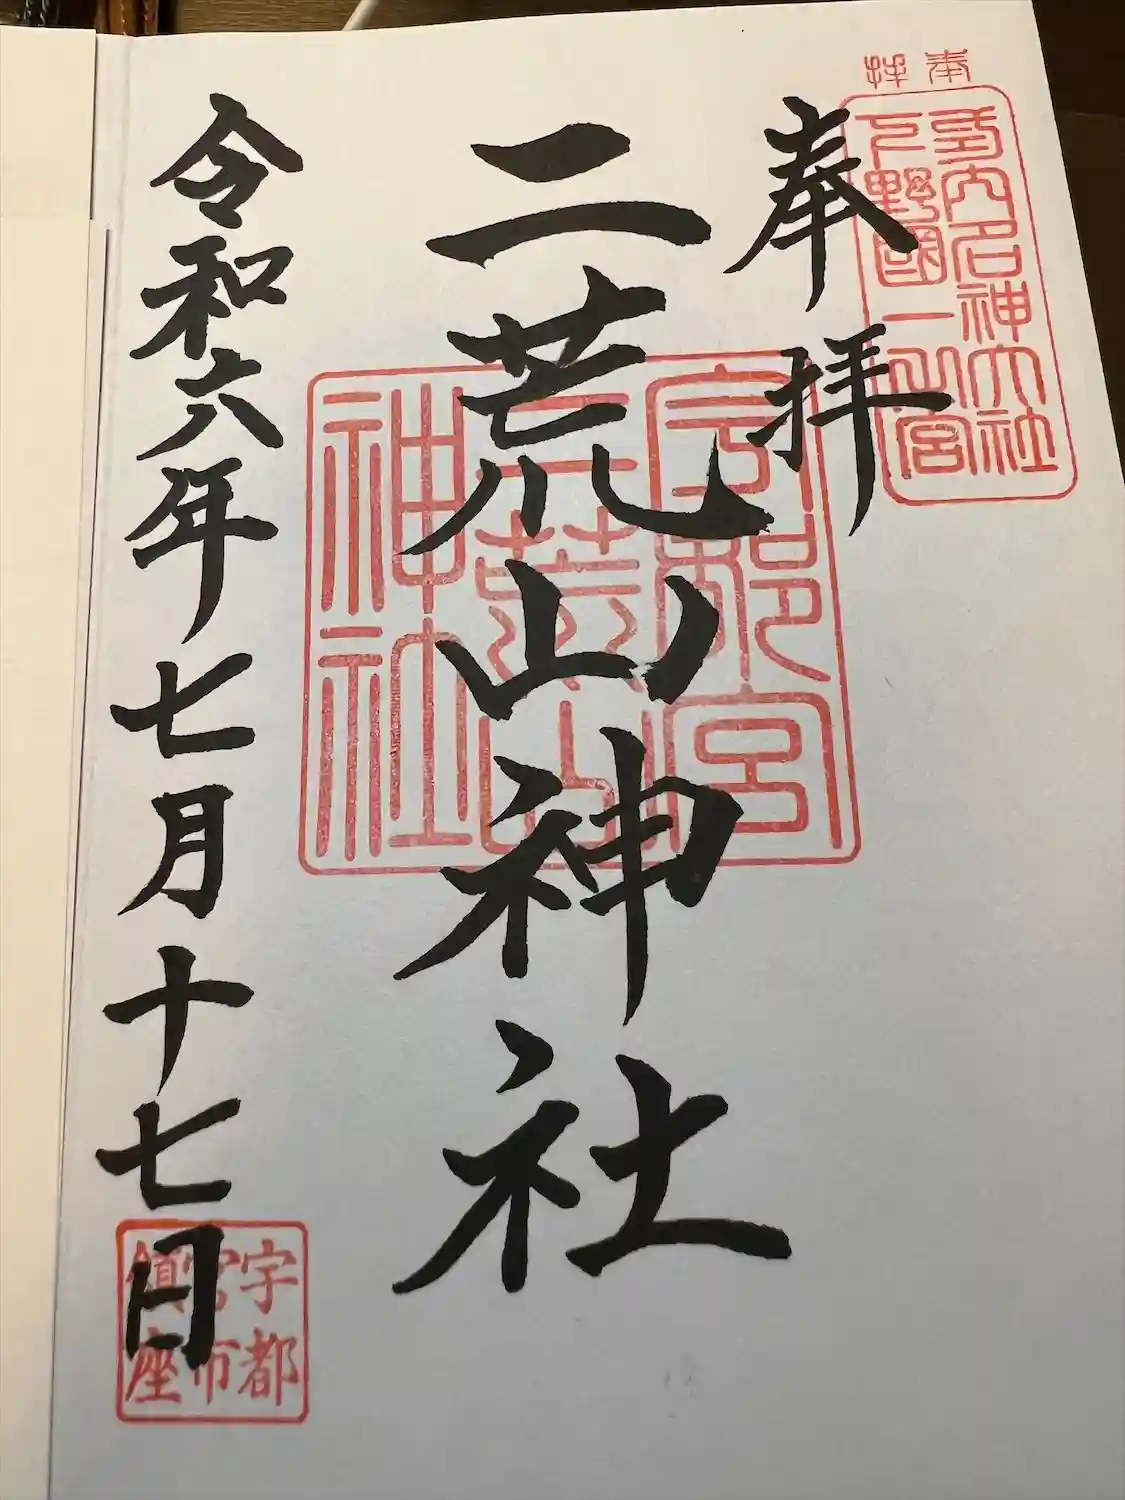 奉拝
延喜式内名神大社
下野國一之宮
奉拝
二荒山神社
宇都宮
二荒山
神社
令和六年七月十七日
宇都
宮市
鎮座